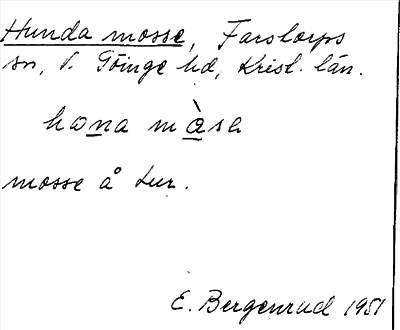 Hunda mosse, Farstorps
sn, V. Göinge hd, Krist. län.
hona màsa
mosse å tur.
E. Bergenrud 1951